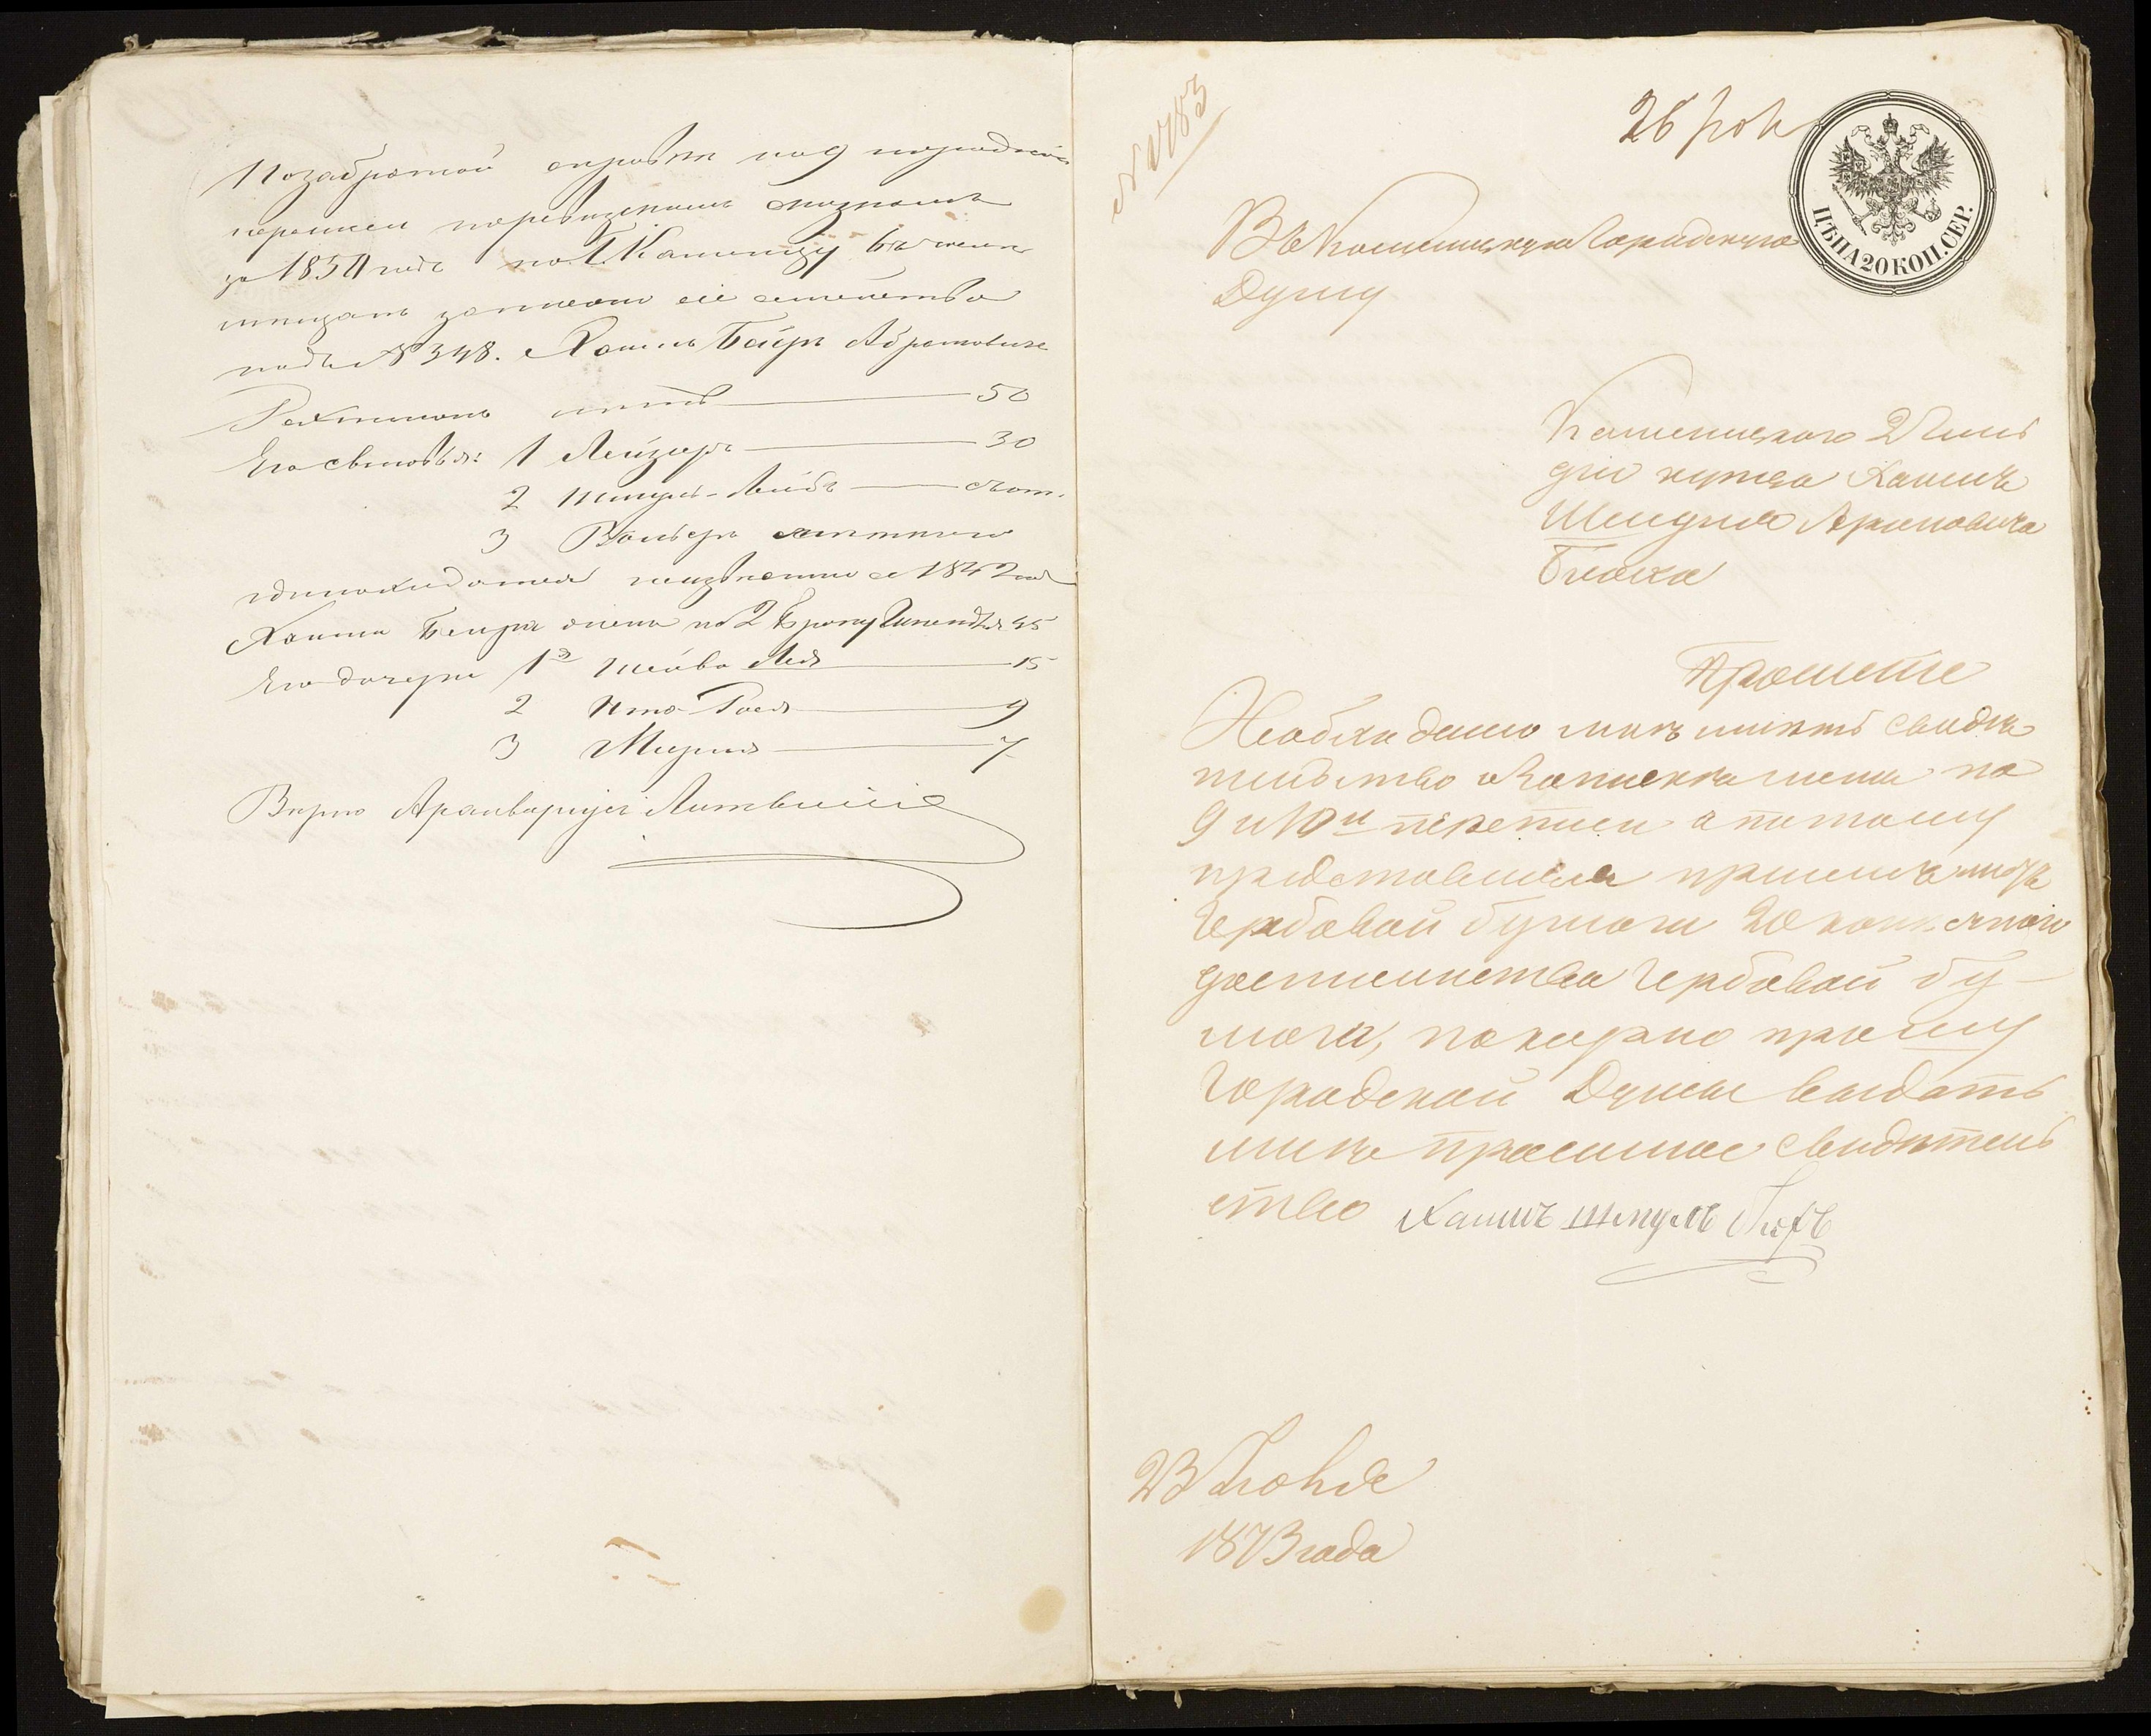 По забранной справке по 9 народной
переписи поревизскимъ сказкамъ
за 1850 годъ по Г. Каменцу въ числе
мещанъ записано сіе семейство
подъ № 348. Хаимъ Беиръ Абрамовичъ
летъ — 50
Его сыновья: 1 Лейзеръ — 30
2 Шмуль-Лейбъ —
3
1842
Хаима Беира жена по 2 браку 45
Его дочери 1я Лея — 15
2 Рося — 9
3 Мирля — 7
Верно Архиваріусъ Литвинъ
№ 1183
26
ЦѢНА 20 КОП. СЕР.
Въ Каменецкую Городскую
Думу
Каменецкого 2 Гиль
дии купца Хаима
Шмуля Ароновича
Блоха
Прошение
Необходимо мнѣ иметь свидѣ
тельство о записке меня по
9 и 10й переписи а потому
представляя при семъ листъ
Гербовой бумаги 20 копеечного
достоинства Гербовой бу-
маги, покорно прошу
Городской Думы выдать
мнѣ просимое свидетель
ство Хаимъ Шмуль Блохъ
23
1873 года